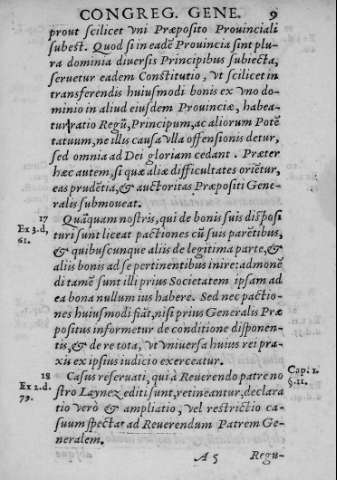 CONGREG. GENE. 9
prout scilicet vni Præposito Prouinciali
subest. Quod si in eadē Prouincia sint plu-
ra dominia diuersis Principibus subiecta,
seruetur eadem Constitutio, vt scilicet in
transferendis huiusmodi bonis ex vno do-
minio in aliud eiusdem Prouinciæ, habea-
tur ratio Regū, Principum, ac aliorum Potē
tatuum, ne illis causa vlla offensionis detur,
sed omnia ad Dei gloriam cedant. Præter
hæc autem, si quæ aliæ difficultates oriētur,
eas prudētia, & auctoritas Præpositi Gene-
ralis submoueat.
17
Ex 3. d,
61.
Quāquam nostris, qui de bonis suis disposi
turi sunt liceat pactiones cū suis parētibus,
& quibuscunque alijs de legitima parte, &
alijs bonis ad se pertinentibus inire: admonē
di tamē sunt illi prius Societatem ipsam ad
ea bona nullum ius habere. Sed nec pactio-
nes huiusmodi fiāt, nisi prius Generalis Præ
positus informetur de conditione disponen-
tis, & de re tota, vt vniuersa huius rei pra-
xis ex ipsius iudicio exerceatur.
18
Ex 2. d.
79.
Casus reseruati, qui à Reuerendo patre no
stro Laynez editi sunt, retineantur, declara
tio verò & ampliatio, vel restrictio ca-
suum spectat ad Reuerendum Patrem Ge-
neralem.
Cap: 1.
§. 11.
A 5 Regu-